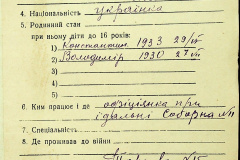 4. Національність українка
5. Родинний стан
при ньому діти до 16 років:
1) Константин 1933 29/VI
2) Володимір 1930 27/VII
3)
4)
5)
6. Ким працює і де офіціянтка при
їдальні Соборна №11
7. Спеціяльність
8. Де проживав до війни